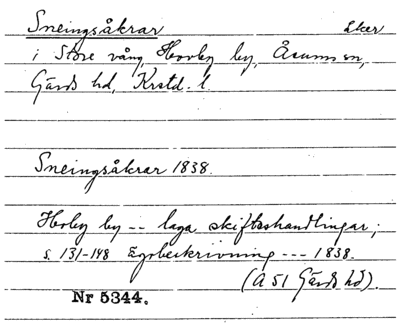 Sneingsåkrar åker
i Store vång, Hovby by, Åsums sn,
Gärds hd, Krstd. l.
Sneingsåkrar 1838.
Hovby by -- laga skifteshandlingar;
s. 131-148 Egobeskrivning --- 1838.
(A 51 Gärds hd).
Nr 5344.